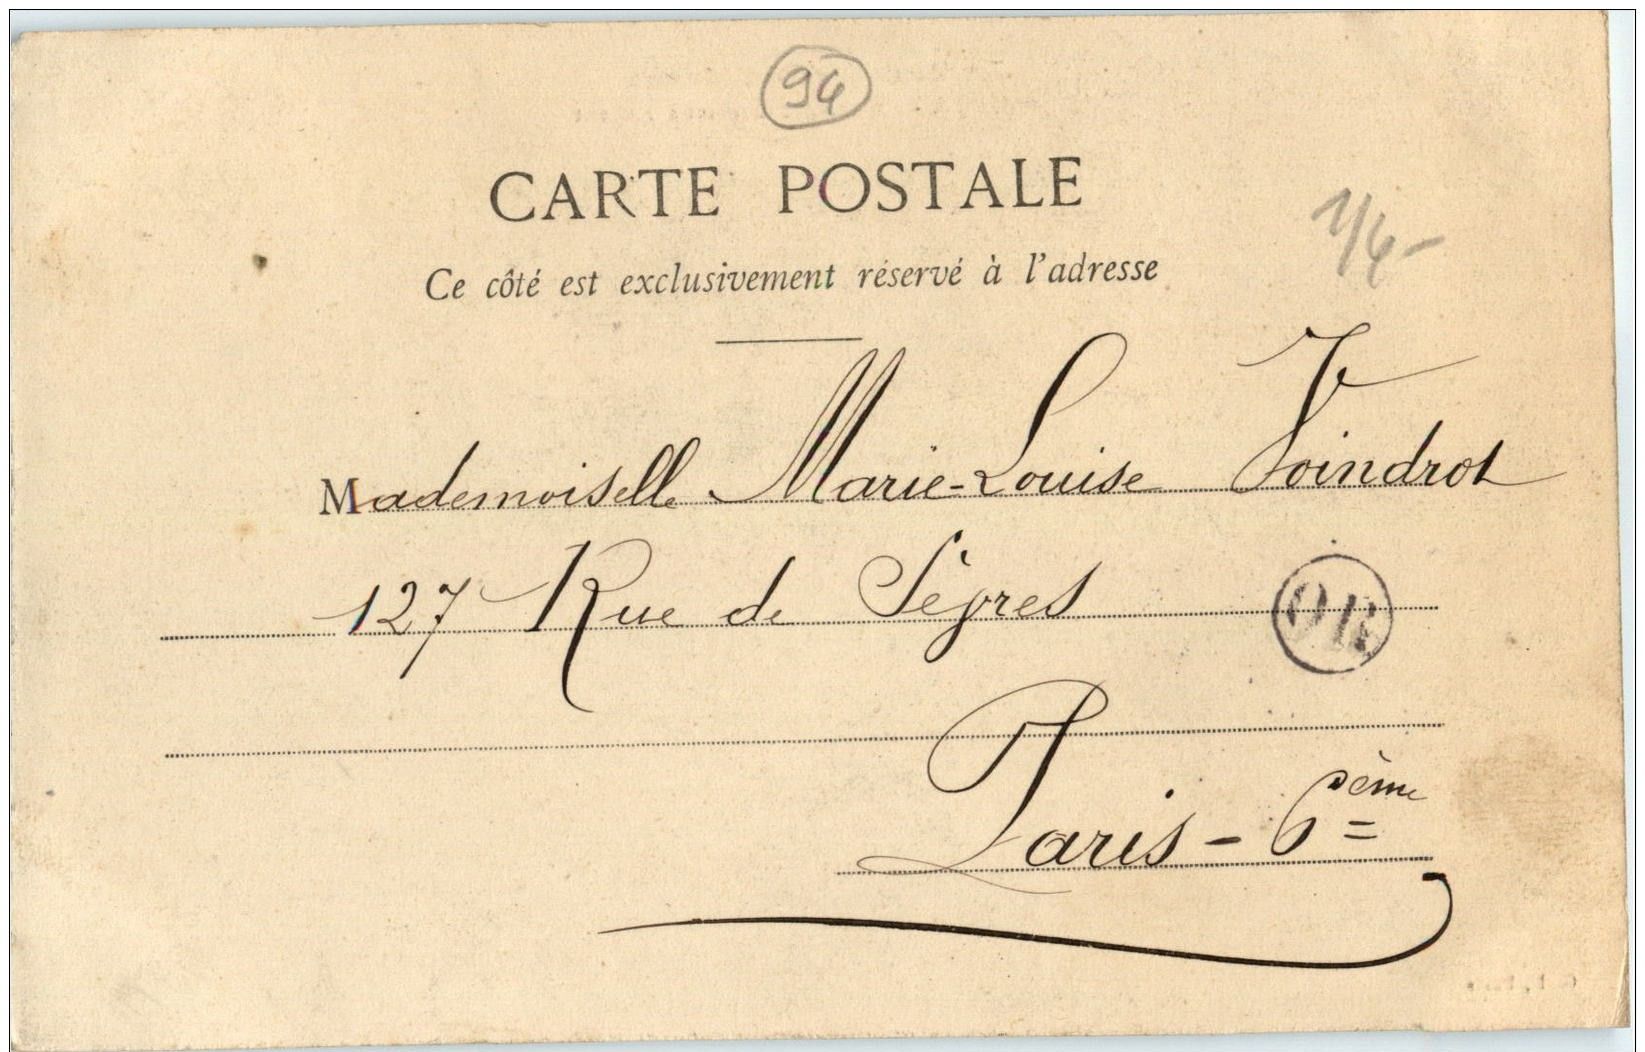 94
CARTE POSTALE
Ce côté est exclusivement réservé à l'adresse
1/4-
Mademoiselle Marie-Louise Voindrot
127 Rue de Sèvres
OR
Paris - 6ème